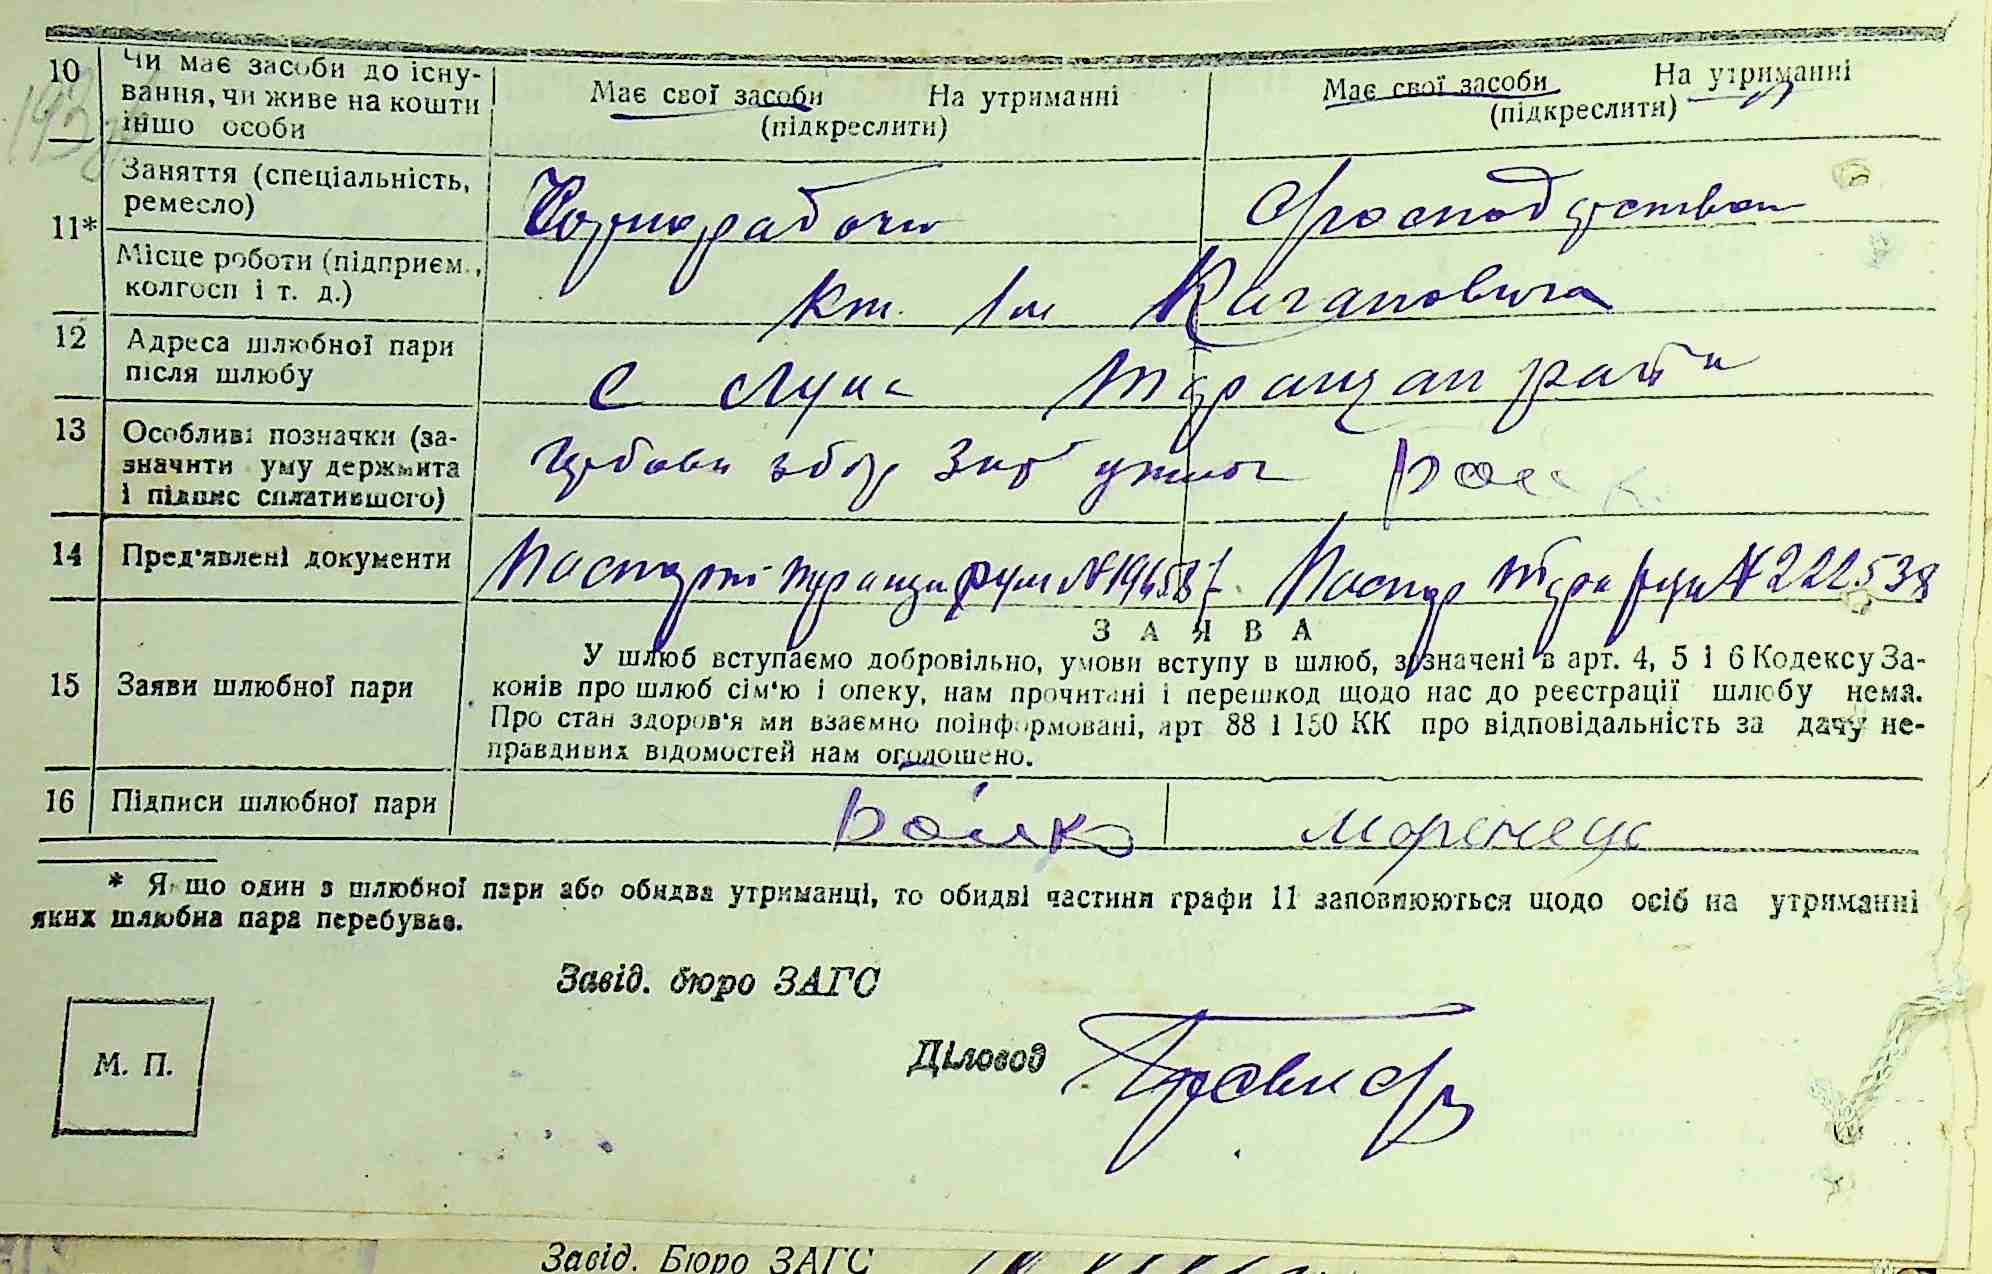 10 Чи має засоби до існу-
вання, чи живе на кошти
іншо особи
Має свої засоби На утриманні
(підкреслити)
Має свої засоби На утриманні
(підкреслити)
11* Заняття (спеціальність,
ремесло)
Чорнорабочи
Місце роботи (підприєм.,
колгосп і т. д.)
Кагановича
12 Адреса шлюбної пари
після шлюбу
с
13 Особливі позначки (за-
значити уму держмита
і підпис сплатившого)
14 Пред'явлені документи
Паспорт № 194587 Паспор № 222538
15 Заяви шлюбної пари
ЗАЯВА
У шлюб вступаємо добровільно, умови вступу в шлюб, зазначені в арт. 4, 5 і 6 Кодексу За-
конів про шлюб сім'ю і опеку, нам прочитані і перешкод щодо нас до реєстрації шлюбу нема.
Про стан здоров'я ми взаємно поінформовані, арт 88 і 150 КК про відповідальність за дачу не-
правдивих відомостей нам оголошено.
16 Підписи шлюбної пари
Бойко
Моренець
* Якшо один з шлюбної пари або обидва утриманці, то обидві частини графи 11 заповнюються щодо осіб на утриманні
яких шлюбна пара перебуває.
Завід. бюро ЗАГС
Діловод
М. П.
Завід. Бюро ЗАГС